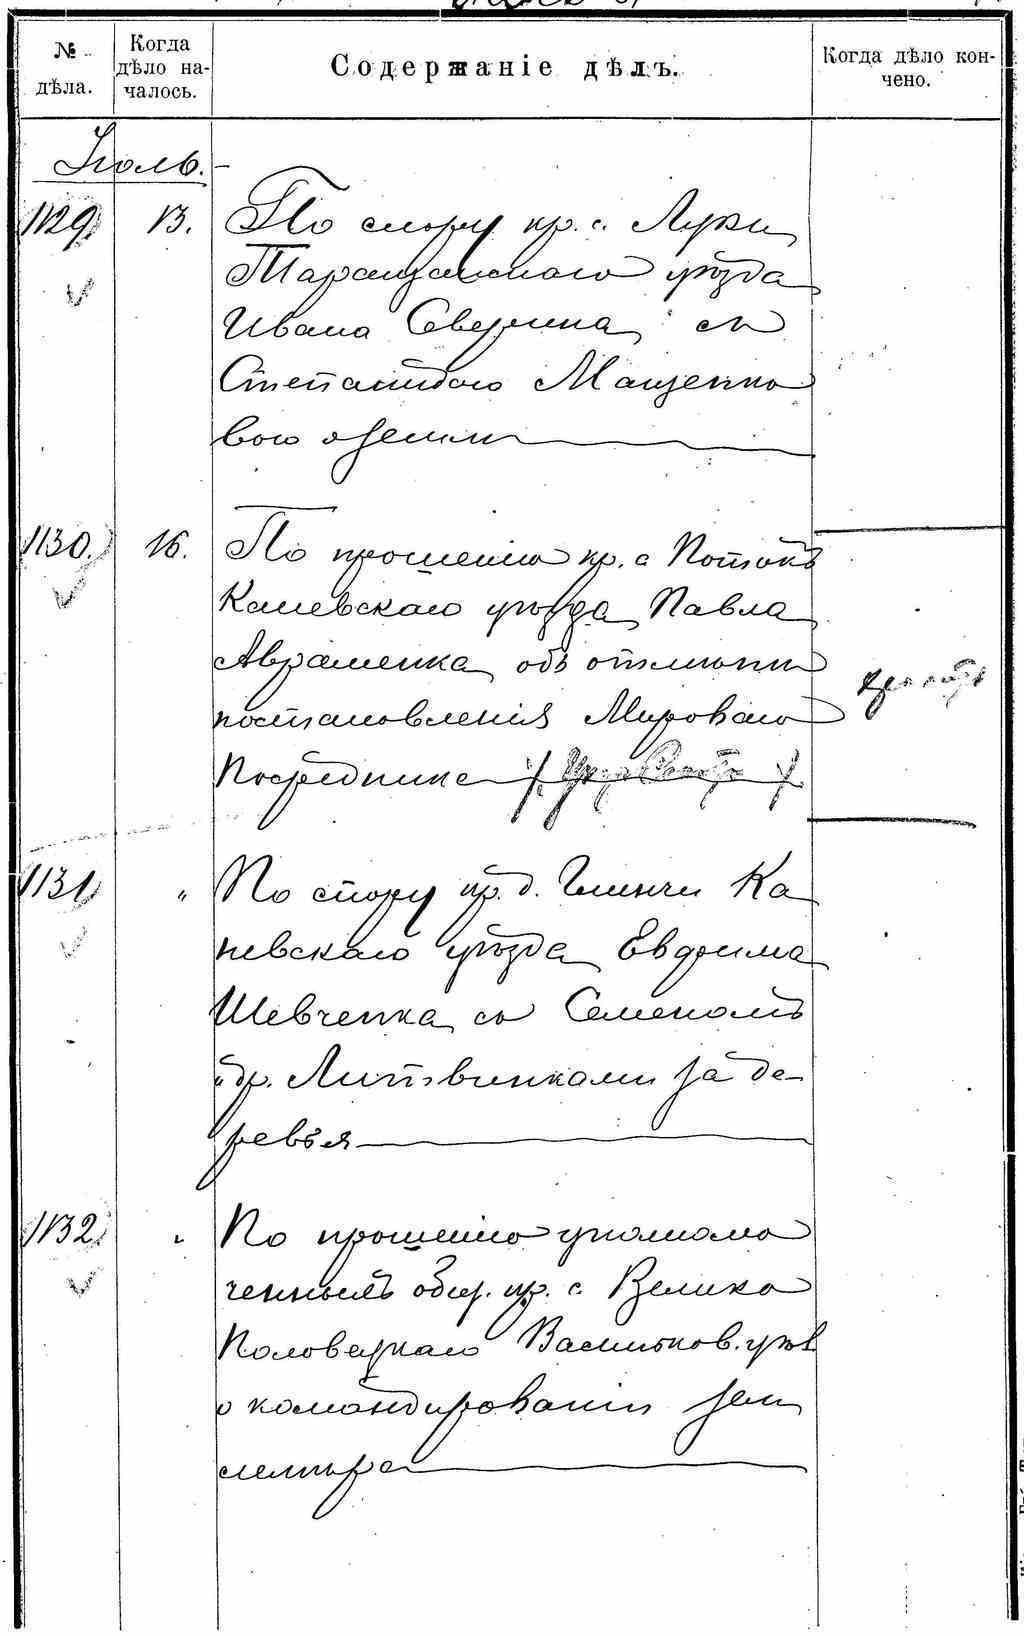 № дѣла.
Когда дѣло началось.
Содержаніе дѣлъ.
Когда дѣло кончено.
Іюль.
1129 13. По спору кр. с. Луки
Таращанскаго уѣзда
Ивана Северина съ
Степанидою Мащенко
вою о земли
1130. 16. По прошенію кр. с Потокъ
Каневскаго уѣзда Павла
Авраменка объ отмѣнѣ
постановленія Мироваго
Посредника
1131 " По спору кр. д. Глинчи Ка
невскаго уѣзда Евфима
Шевченка съ Семеномъ
и др. Литвинками за де-
ревья
1132 " По прошенію уполномо
ченныхъ общ. кр. с. Велико
Половецкаго Васильков. уѣз
о командированіи зем
лемѣра